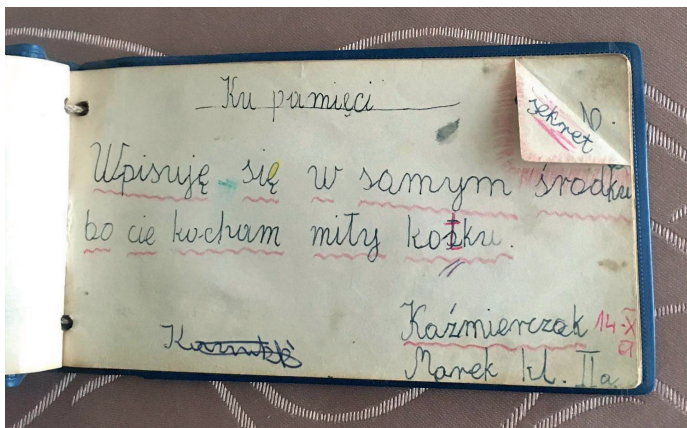 Ku pamięci
sekret
Wpisuję się w samym środku
bo cie kocham miły kotku.
Kaźmierczak 14-X
Marek kl. IIa